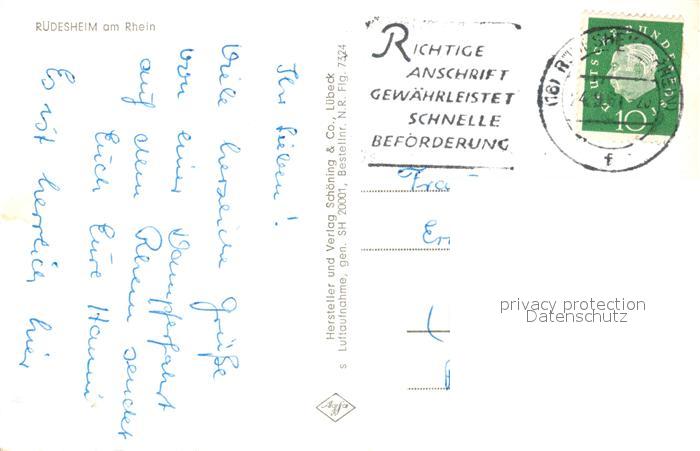 RÜDESHEIM am Rhein
Ihr Lieben!
Viele herzliche Grüße
von einer Dampferfahrt
auf dem Rhein sendet
Euch Eure Hanni
Es ist herrlich hier
Hersteller und Verlag Schöning & Co., Lübeck
s Luftaufnahme, gen. SH 20001, Bestellnr. N.R. Flg. 7324
Agfa
RICHTIGE
ANSCHRIFT
GEWÄHRLEISTET
SCHNELLE
BEFÖRDERUNG
(16) RÜDESHEIM
f
DEUTSCHE BUNDESPOST
10
Frau
privacy protection
Datenschutz